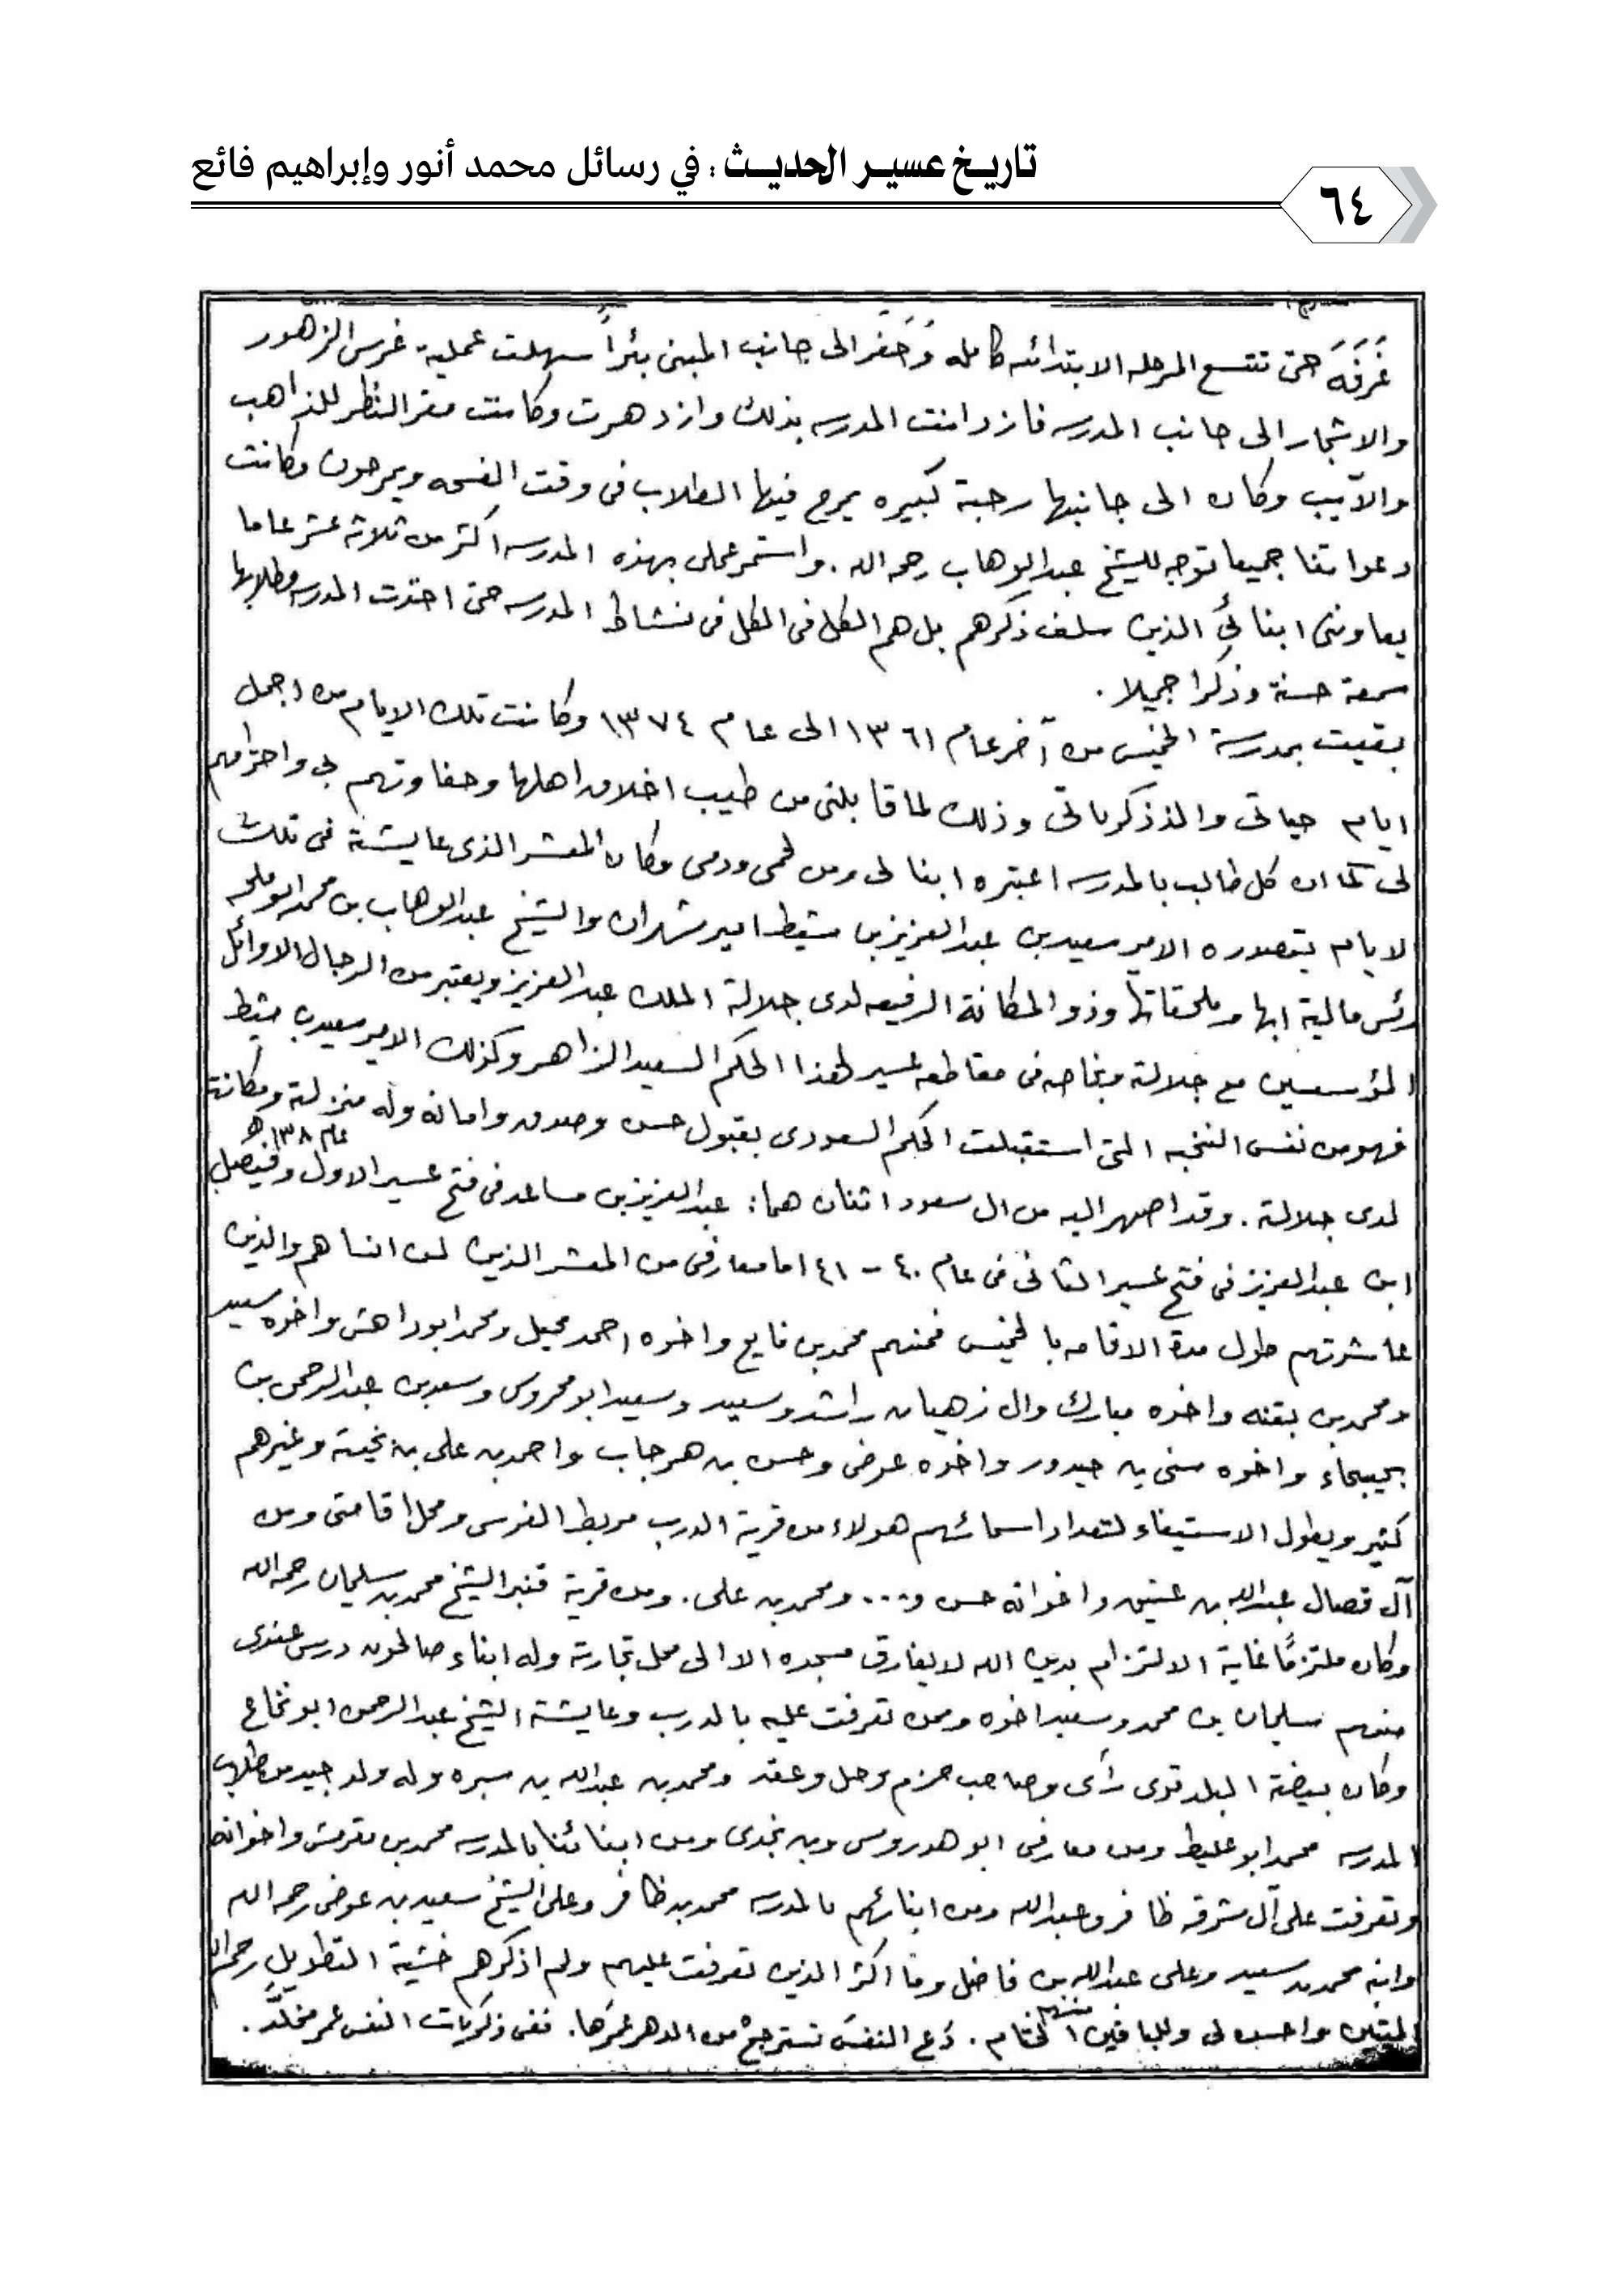 تاريخ عسير الحديث : في رسائل محمد أنور وإبراهيم فائع
٦٤
غرفه حتى تتسع المرحله الابتدائه كامله وحفر الى جانب المبنى بئراً سهلت عملية غرس الزهور
والاشجار الى جانب المدرسه فازدانت المدرسه بذلك وازدهرت وكانت مقر النظر للذاهب
والآيب وكان الى جانبها رحبة كبيره يمرح فيها الطلاب فى وقت الفسحه ويمرحون وكانت
دعواتنا جميعا توجه للشيخ عبدالوهاب رحمه الله . واستمر عملى بهذه المدرسه اكثر من ثلاثة عشر عاما
يعاوننى ابنائي الذين سلف ذكرهم بل هم الكل فى الكل فى نشاط المدرسه حتى اخذت المدرسه وطلابها
سمعة حسنة وذكرا جميلا .
بقيت بمدرسة الخميس من آخر عام ١٣٦١ الى عام ١٣٧٤ وكانت تلك الايام من اجمل
ايام حياتى والذ ذكرياتى وذلك لما قابلنى من طيب اخلاق اهلها وحفاوتهم بى واحترامهم
لى كما ان كل طالب بالمدرسه اعتبره ابنا لى ومن لحمى ودمى وكان المعشر الذى عايشته فى تلك
الايام يتصدره الامير سعيد بن عبدالعزيز بن مشيط امير شهران والشيخ عبدالوهاب بن محمد ابوملحه
رئس مالية ابها وملحقاتها وذو المكانة الرفيعه لدى جلالة الملك عبدالعزيز ويعتبر من الرجال الاوائل
المؤسسين مع جلالته وبخاصه فى مقاطعه عسير لهذا الحكم السعيد الزاهر وكذلك الامير سعيد بن مشيط
فهو من نفس النخبه التى استقبلت الحكم السعودى بقبول حسن وصدق وامانه وله منزلته ومكانته
لدى جلالته . وقد اصهر اليه من ال سعود اثنان هما : عبدالعزيز بن مساعد فى فتح عسير الاول عام ١٣٨ هـ وفيصل
ابن عبدالعزيز فى فتح عسير الثانى فى عام ٤٠ - ٤١ اما معارفى من المعشر الذين لمن انساهم والذين
عاشرتهم طول مدة الاقامه بالخميس فمنهم محمد بن فايع واخوه احمد محيل ومحمد ابو داهش واخوه سعيد
ومحمد بن بقنه واخوه مبارك وال زهيان راشد وسعيد وسعيد ابو محروس وسعد بن عبدالرحمن بن
واخوه سنى بن حيدور واخوه عوض وحسن بن هرجاب واحمد بن على بن نخيته وغيرهم
كثير ويطول الاستيفاء لتعداد اسمائهم هولاء من قرية الدرب مربط الفرس ومحل اقامتى ومن
آل قصال عبدالله بن عتيق واخوانه حسن و ... ومحمد بن على . ومن قرية قنبر الشيخ محمد بن سليمان رحمه الله
وكان ملتزمًا غاية الالتزام بدين الله لا يفارق مسجده الا الى محل تجارته وله ابناء صالحون درس عندى
منهم سليمان بن محمد وسعيد اخوه وممن تعرفت عليه بالدرب وعايشته الشيخ عبدالرحمن ابو نخاع
وكان بيضة البلد قوى رأى وصاحب حزم وحل وعقد ومحمد بن عبدالله بن سبره وله ولد جيد من طلاب
المدرسه محمد ابو غليط ومن معارفى ابو هدروس وبن نجدى ومن ابنائنا بالمدرسه محمد بن واخوانه
وتعرفت على آل مشرفه ظافر وعبدالله ومن ابنائهم بالمدرسه محمد بن ظافر وعلى الشيخ سعيد بن عوض رحمه الله
وابنه محمد بن سعيد وعلى عبدالله بن فاضل وما اكثر الذين تعرفت عليهم ولم اذكرهم خشية التطويل رحم الله
الميتين منهم واحسن لى وللباقين الختام . دَع النفسَ تسترجعْ من الدهر عمرَها . ففى ذكريات النفس عمر مخلَّد .